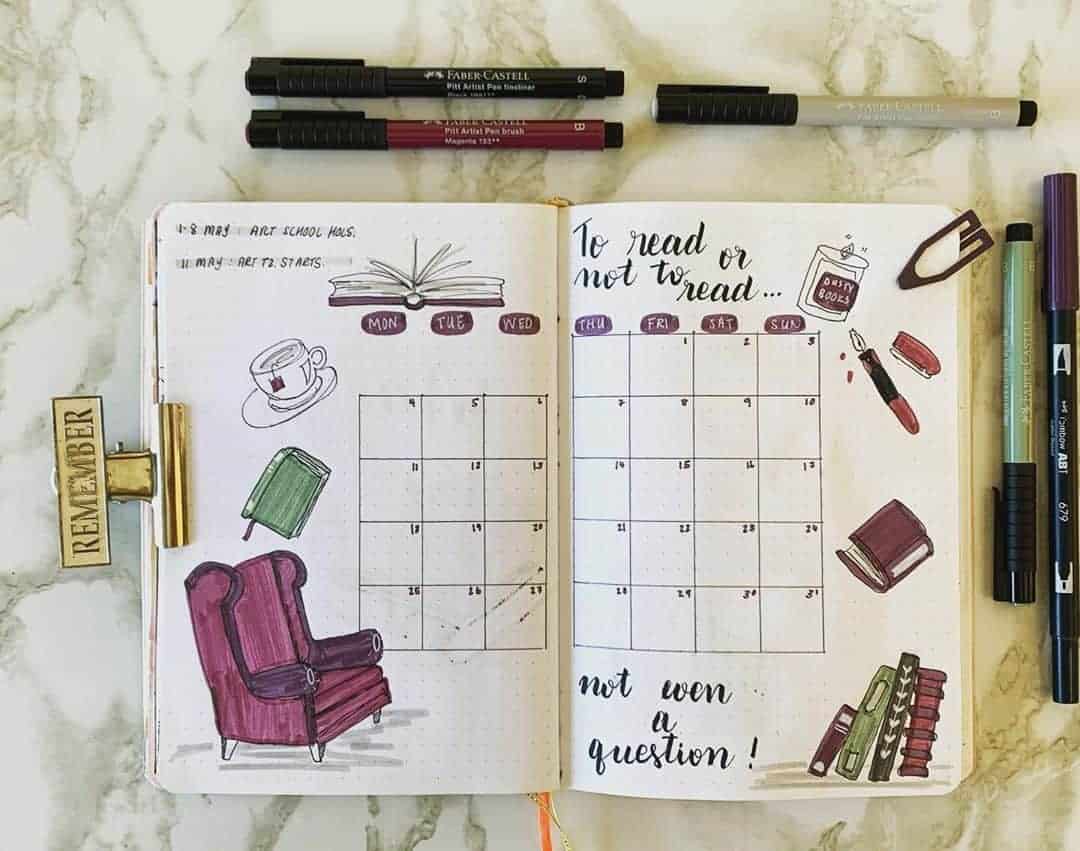 FABER-CASTELL
Pitt Artist Pen fineliner
S
FABER-CASTELL
Pitt Artist Pen brush
Magenta 133**
B
FABER-CASTELL
B
1-8 MAY : ART SCHOOL HOLS.
11 MAY : ART T2 STARTS.
To read or
not to read...
DUSTY
BOOKS
MON TUE WED THU FRI SAT SUN
1 2 3
4 5 6 7 8 9 10
11 12 13 14 15 16 17
18 19 20 21 22 23 24
25 26 27 28 29 30 31
not even
a
question!
REMEMBER
FABER-CASTELL
ABT
679